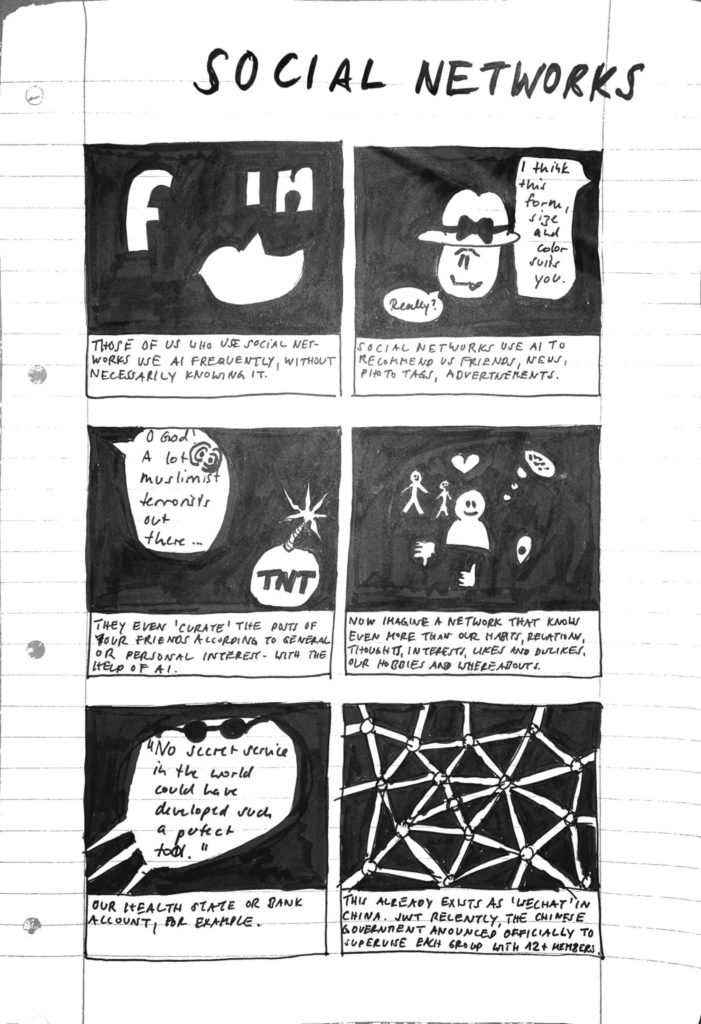 SOCIAL NETWORKS
f in
THOSE OF US WHO USE SOCIAL NET-
WORKS USE AI FREQUENTLY, WITHOUT
NECESSARILY KNOWING IT.
I think
this
form,
size
and
color
suits
you.
Really?
SOCIAL NETWORKS USE AI TO
RECOMMEND US FRIENDS, NEWS,
PHOTO TAGS, ADVERTISEMENTS.
O God!
A lot
muslimist
terrorists
out
there...
TNT
THEY EVEN 'CURATE' THE POSTS OF
YOUR FRIENDS ACCORDING TO GENERAL
OR PERSONAL INTEREST - WITH THE
HELP OF AI.
NOW IMAGINE A NETWORK THAT KNOWS
EVEN MORE THAN OUR HABITS, RELATION,
THOUGHTS, INTERESTS, LIKES AND DISLIKES,
OUR HOBBIES AND WHEREABOUTS.
"No secret service
in the world
could have
developed such
a perfect
tool."
OUR HEALTH STATE OR BANK
ACCOUNT, FOR EXAMPLE.
THIS ALREADY EXISTS AS 'WECHAT' IN
CHINA. JUST RECENTLY, THE CHINESE
GOVERNMENT ANOUNCED OFFICIALLY TO
SUPERVISE EACH GROUP WITH 12+ MEMBERS.